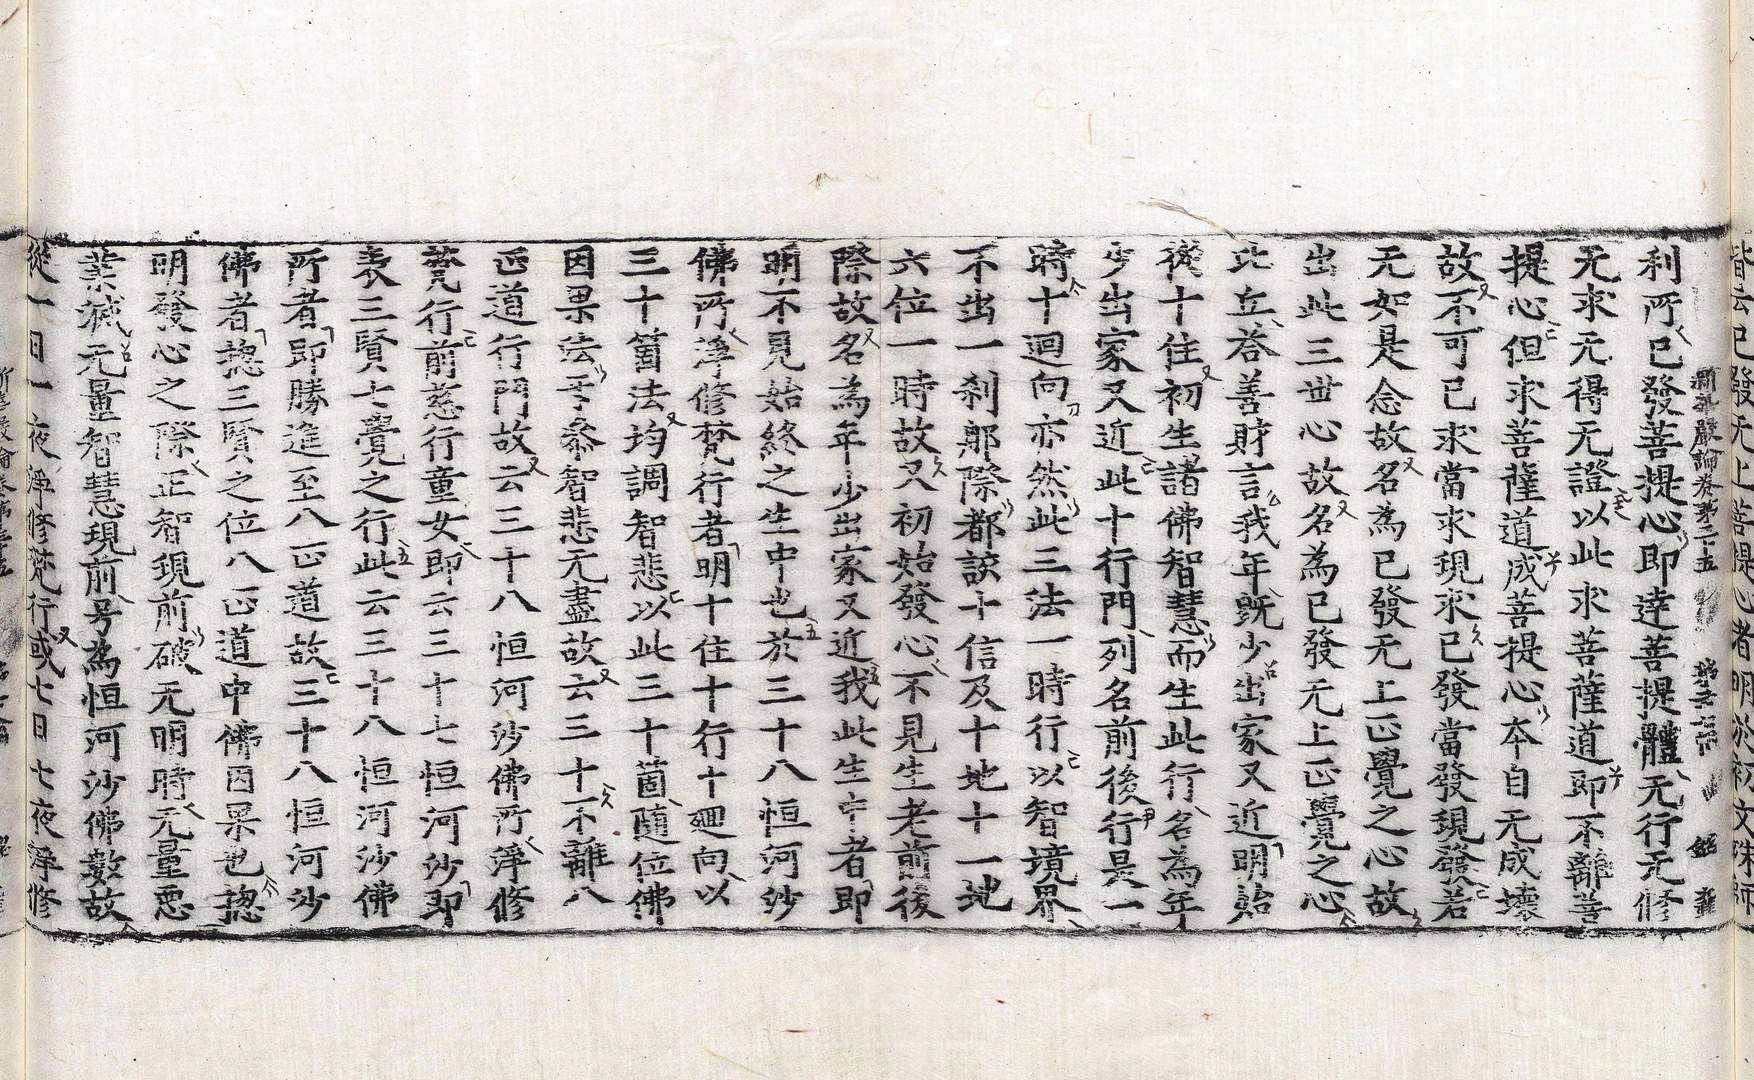 皆云已發无上菩提心者明於初文殊師
新華嚴論卷第三十五
利所已發菩提心即達菩提體无行无修
无求无得无證以此求菩薩道即不離菩
提心但求菩薩道成菩提心本自无成壞
故不可已求當求現求已發當發現發若
无如是念故名為已發无上正覺之心故
出此三世心故名為已發无上正覺之心
比丘荅善財言我年旣少出家又近明始
從十住初生諸佛智慧而生此行名為年
少出家又近此十行門列名前後行是一
時十迴向亦然此三法一時行以智境界
不出一刹那際都該十信及十地十一地
六位一時故又初始發心不見生老前後
際故名為年少出家又近我此生中者即
明不見始終之生中也於三十八恒河沙
佛所淨修梵行者明十住十行十迴向以
三十箇法均調智悲以此三十箇隨位佛
因果法于叅智悲无盡故云三十不離八
正道行門故云三十八恒河沙佛所淨修
梵行前慈行童女即云三十七恒河沙即
表三賢七覺之行此云三十八恒河沙佛
所者即勝進至八正道故三十八恒河沙
佛者揔三賢之位八正道中佛因果也揔
明發心之際正智現前破无明時无量惡
業減无量智慧現前号為恒河沙佛數故
從一日一夜淨修梵行或七日七夜淨修